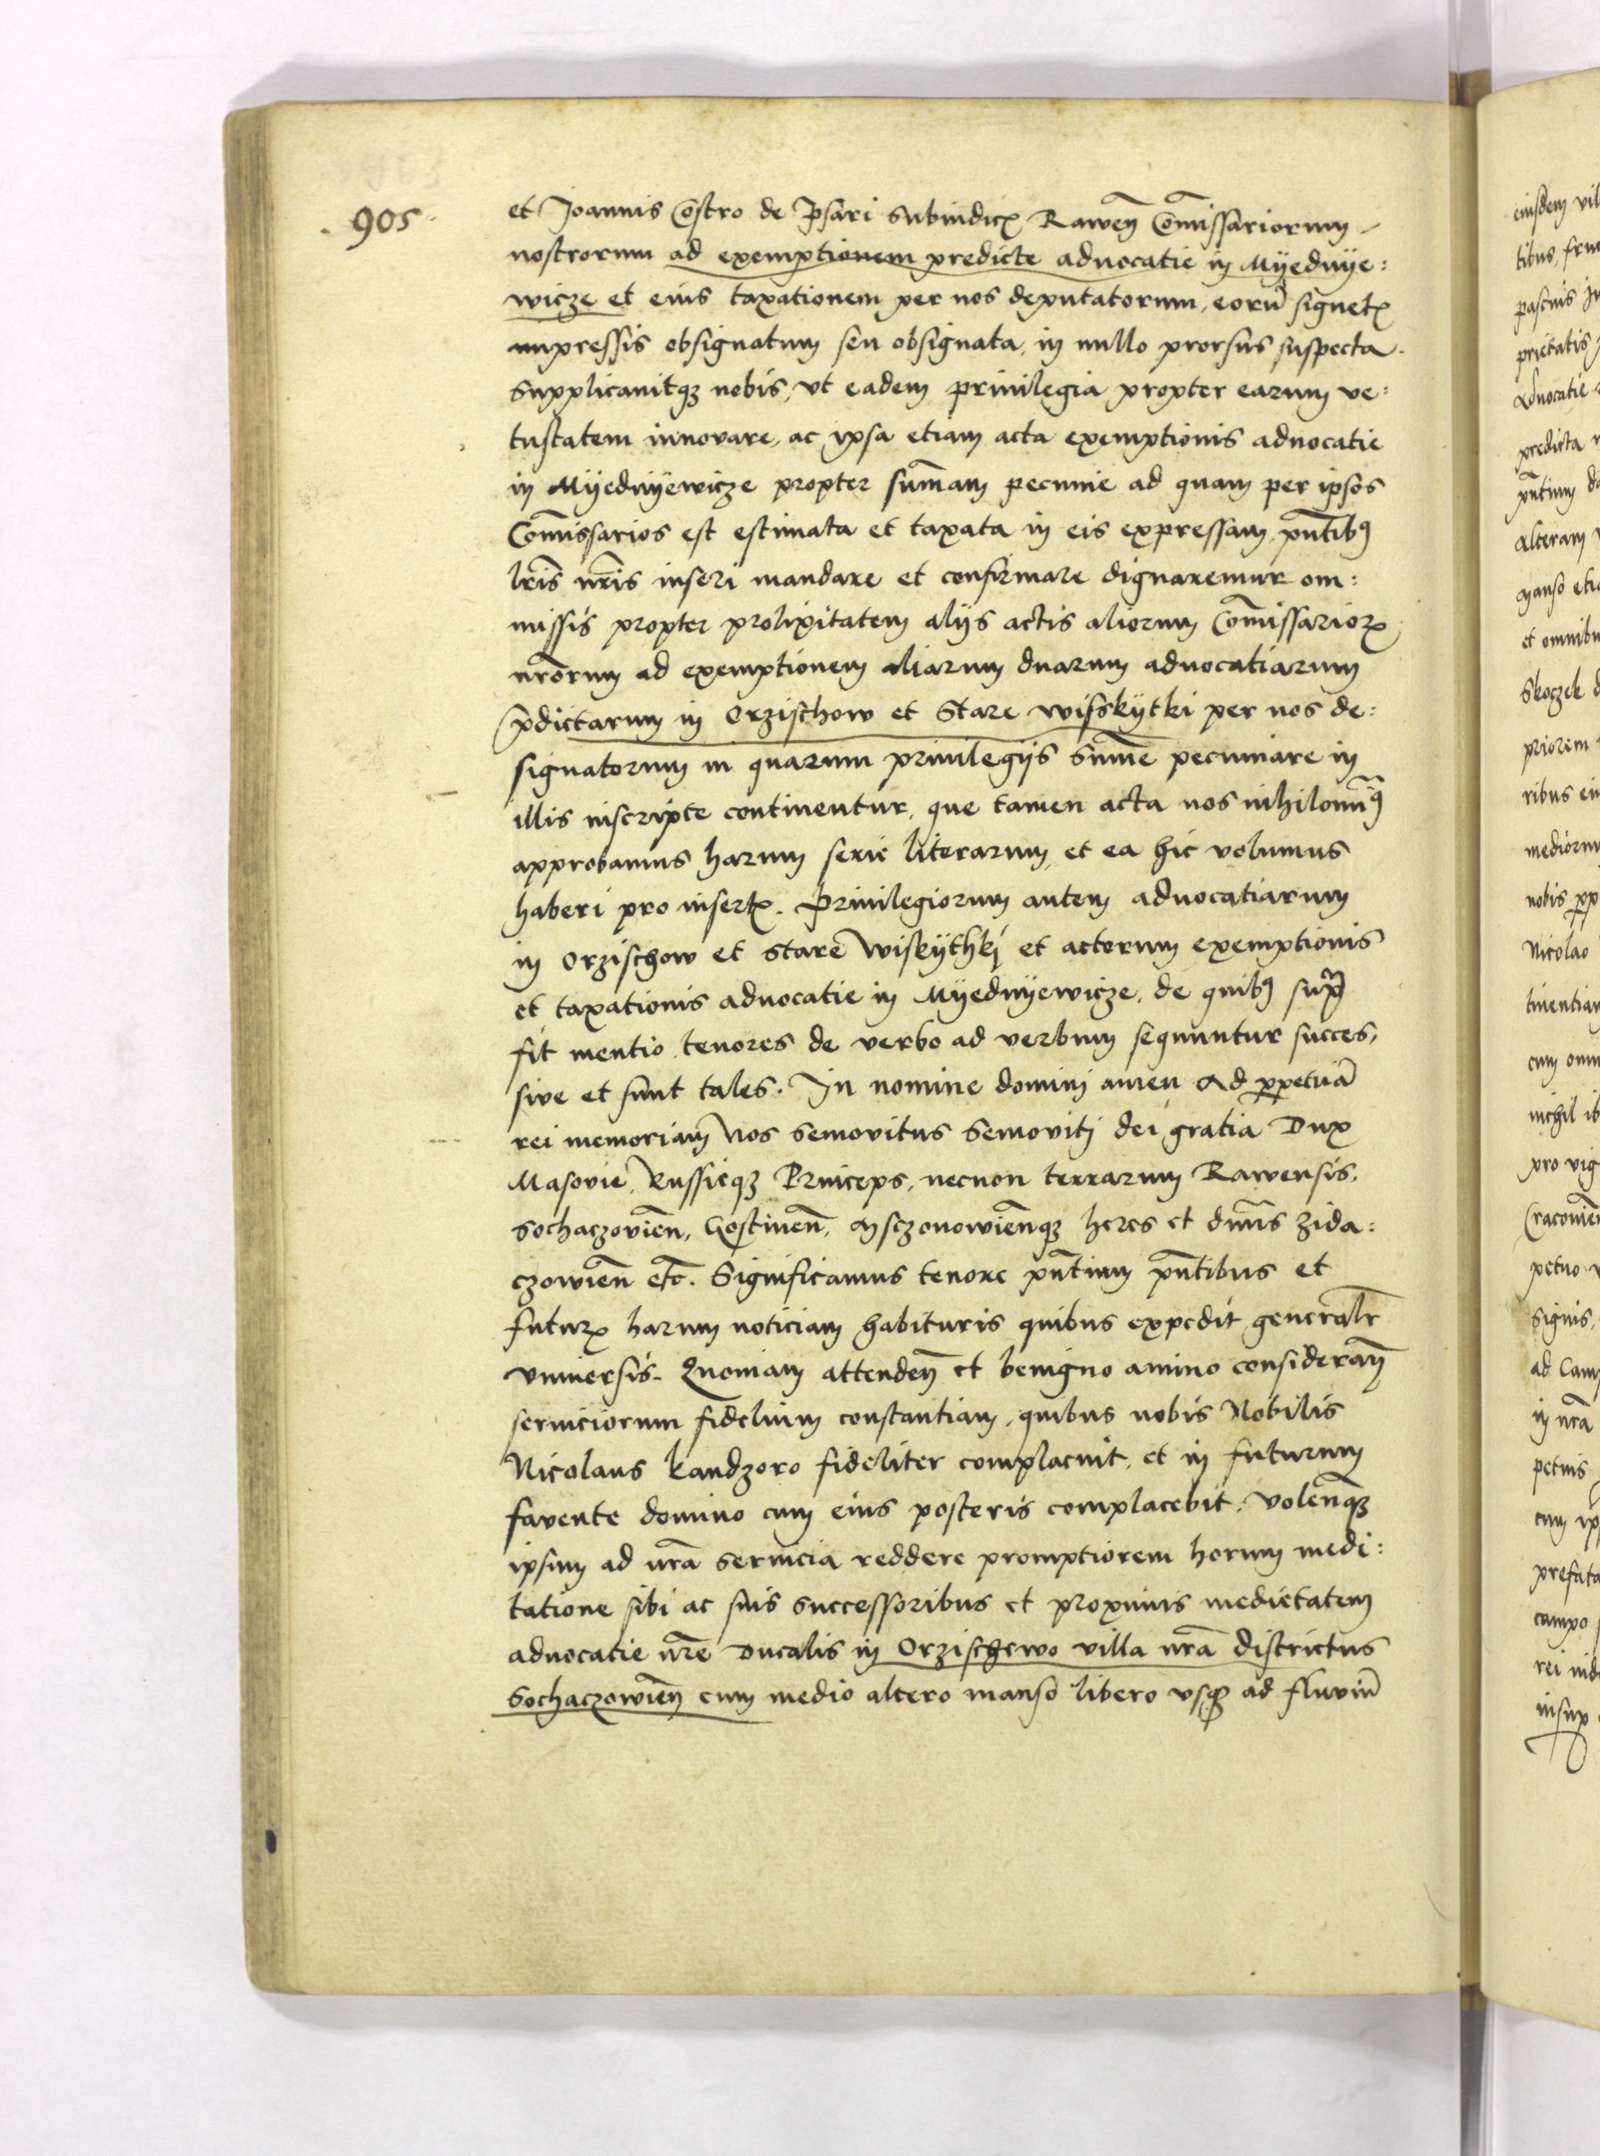 905
et Joannis Costro de Jpsari Subiudicꝭ Raweñ Com̃issariorum
nostrorum ad exemptionem predicte aduocatie in Myednye:
wicze et eius taxationem per nos deputatorum, eorũ signetꝭ
impressis obsignatum seu obsignata, in nullo prorsus suspecta.
Supplicauitqꝫ nobis, vt eadem priuilegia propter earum ve:
tustatem innovare, ac ipsa etiam acta exemptionis aduocatie
in Myednyewicze propter sum̃am pecunie ad quam per ipsos
Com̃issarios est estimata et taxata in eis expressam, pñtibꝰ
lr̃is nr̃is inseri mandare et confirmare dignaremur om:
missis propter prolixitatem alijs actis aliorum Com̃issarioꝝ
nr̃orum ad exemptionem aliarum duarum aduocatiarum
p̃dictarum in Orzischow et Stare wisskytki per nos de:
signatorum in quarum priuilegijs sum̃e pecuniare in
illis inscripte continentur, que tamen acta nos nihilomĩꝰ
approbamus harum serie literarum, et ea hic volumus
haberi pro insertꝭ. Priuilegiorum autem aduocatiarum
in Orzischow et stare Wiskythkj et actorum exemptionis
et taxationis aduocatie in Myednyewicze, de quibꝰ supra
fit mentio tenores de verbo ad verbum sequuntur succes,
sive et sunt tales. In nomine dominj amen Ad ꝑpetuã
rei memoriam Nos Semovitus Semovitj dei gratia Dux
Masovie, Russieqꝫ Princeps, necnon terrarum Rawensis,
Sochaczovieñ, Gostineñ, Msczonowieñqꝫ heres et dñus Zida:
czowieñ etc̃. Significamus tenore pñtium pñtibus et
futurꝭ harum noticiam habituris quibus expedit generalr̃
vniuersis. Quoniam attendeñ et benigno animo considerañ
seruiciorum fidelium constantiam, quibus nobis Nobilis
Nicolaus kandzoro fideliter complacuit, et in futurum
favente domino cum eius posteris complacebit, Voleñqꝫ
ipsum ad nr̃a seruicia reddere promptiorem horum medi:
tatione sibi ac suis successoribus et proximis medietatem
aduocatie nr̃e Ducalis in Orzischewo villa nr̃a districtus
Sochaczowieñ cum medio altero manso libero vsqꝫ ad fluviũ